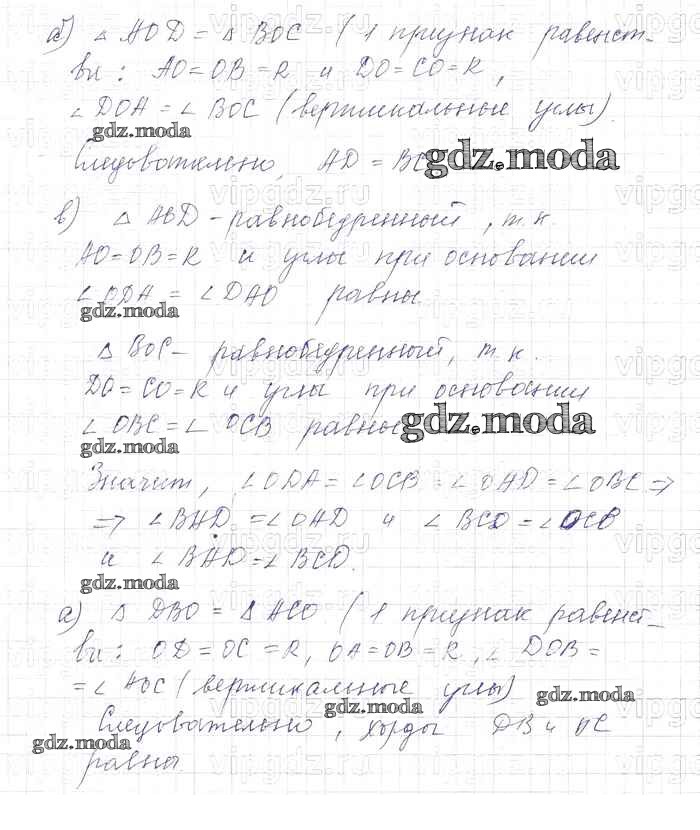 б) △ AOD = △ BOC (1 признак равенст-
ва: AO=OB=R и DO=CO=R,
∠DOA = ∠BOC (вертикальные углы).
gdz.moda
Следовательно, AD = BC
gdz.moda
в) △ AOD - равнобедренный, т.к.
AO=OB=R и углы при основании
∠ODA = ∠DAO равны
gdz.moda
△ BOC - равнобедренный, т.к.
DO=CO=R и углы при основании
∠OBC = ∠OCB равны
gdz.moda
gdz.moda
Значит, ∠ODA = ∠OCB = ∠OAD = ∠OBC ⇒
⇒ ∠BAD = ∠OAD и ∠BCD = ∠OCB
и ∠BAD = ∠BCD.
gdz.moda
а) △ DBO = △ ACO (1 признак равенст-
ва: OD = OC = R, OA=OB=R, ∠DOB =
= ∠AOC (вертикальные углы)
gdz.moda
gdz.moda
Следовательно, хорды DB и AC
gdz.moda
равны